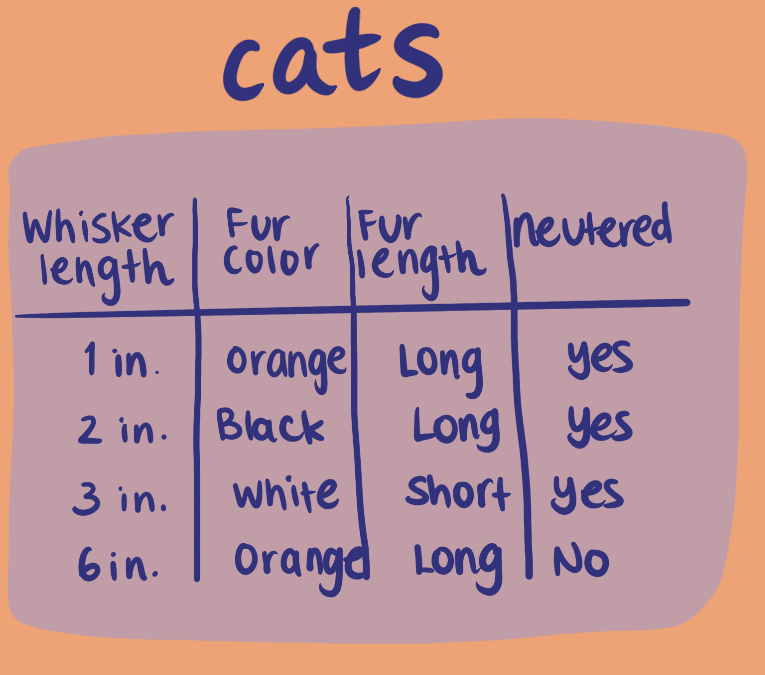 cats
Whisker length Fur color Fur length neutered
1 in. orange Long yes
2 in. Black Long yes
3 in. white short yes
6 in. orange Long No